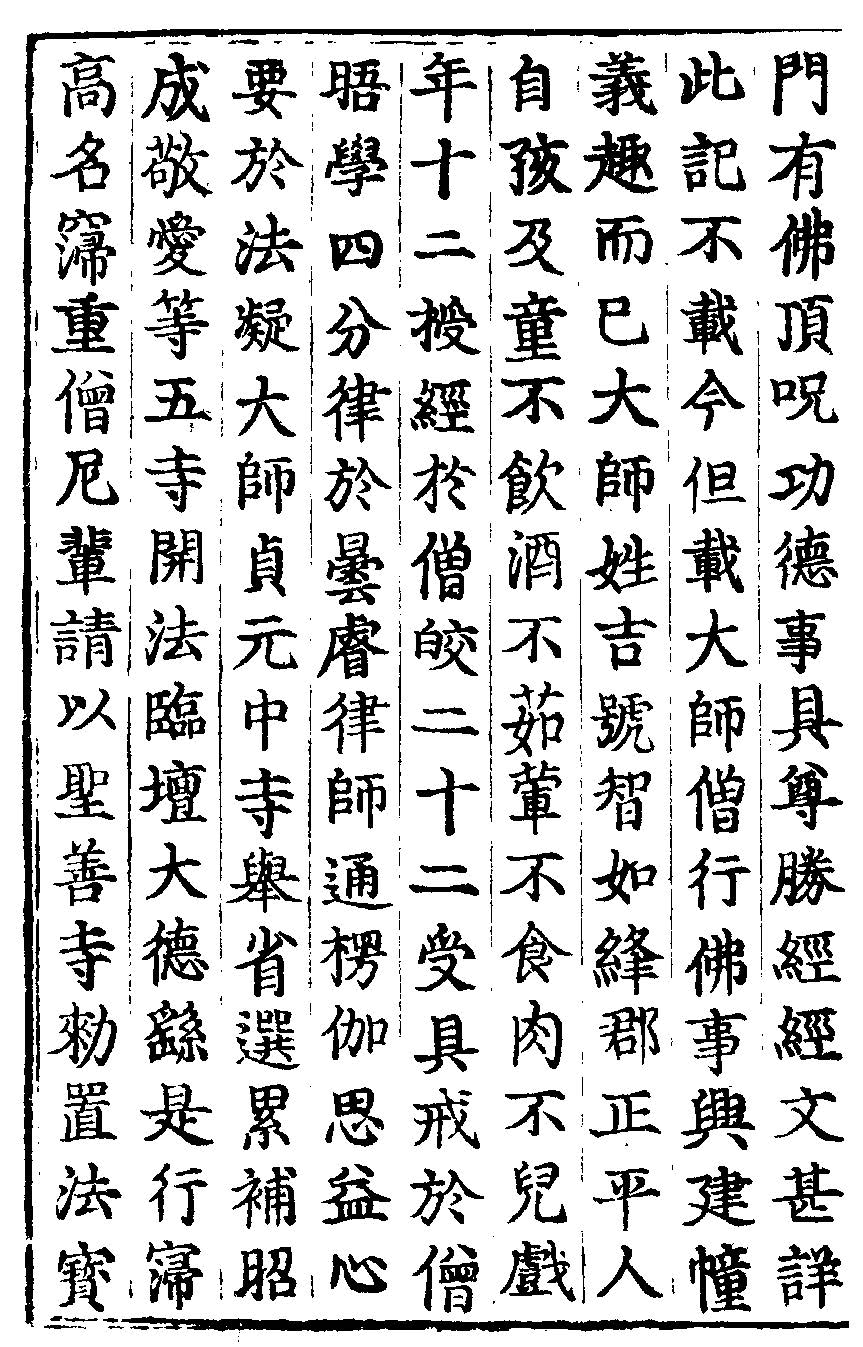 門有佛頂呪功德事具尊勝經經文甚詳
此記不載今但載大師僧行佛事與建幢
義趣而已大師姓吉號智如絳郡正平人
自孩及童不飲酒不茹葷不食肉不兒戲
年十二授經於僧皎二十二受具戒於僧
晤學四分律於曇睿律師通楞伽思益心
要於法凝大師貞元中寺舉省選累補昭
成敬愛等五寺開法臨壇大德繇是行寖
高名寖重僧尼輩請以聖善寺勑置法寶